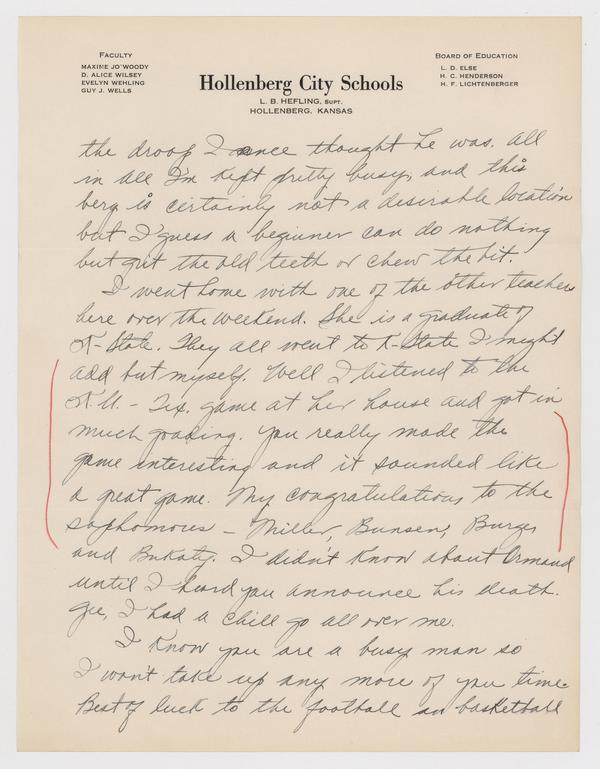 Faculty
MAXINE JO WOODY
D. ALICE WILSEY
EVELYN WEHLING
GUY J. WELLS
Board of Education
L. D. ELSE
H. C. HENDERSON
H. F. LICHTENBERGER
Hollenberg City Schools
L. B. HEFLING, SUPT.
HOLLENBERG, KANSAS
the droop I once thought he was. All
in all I'm kept pretty busy, and this
berg is certainly not a desirable location
but I guess a beginner can do nothing
but grit the old teeth or chew the bit.
I went home with one of the other teachers
here over the weekend. She is a graduate of
K-State. They all went to K-State I might
add but myself. Well I listened to the
K.U. - Tex. game at her house and got in
much goading. You really made the
game interesting and it sounded like
a great game. My congratulations to the
sophomores - Miller, Bunsen, Burges
and Bukaty. I didn't know about Ormand
until I heard you announce his death.
Gee, I had a chill go all over me.
I know you are a busy man so
I won't take up any more of you time.
Best of luck to the football an basketball